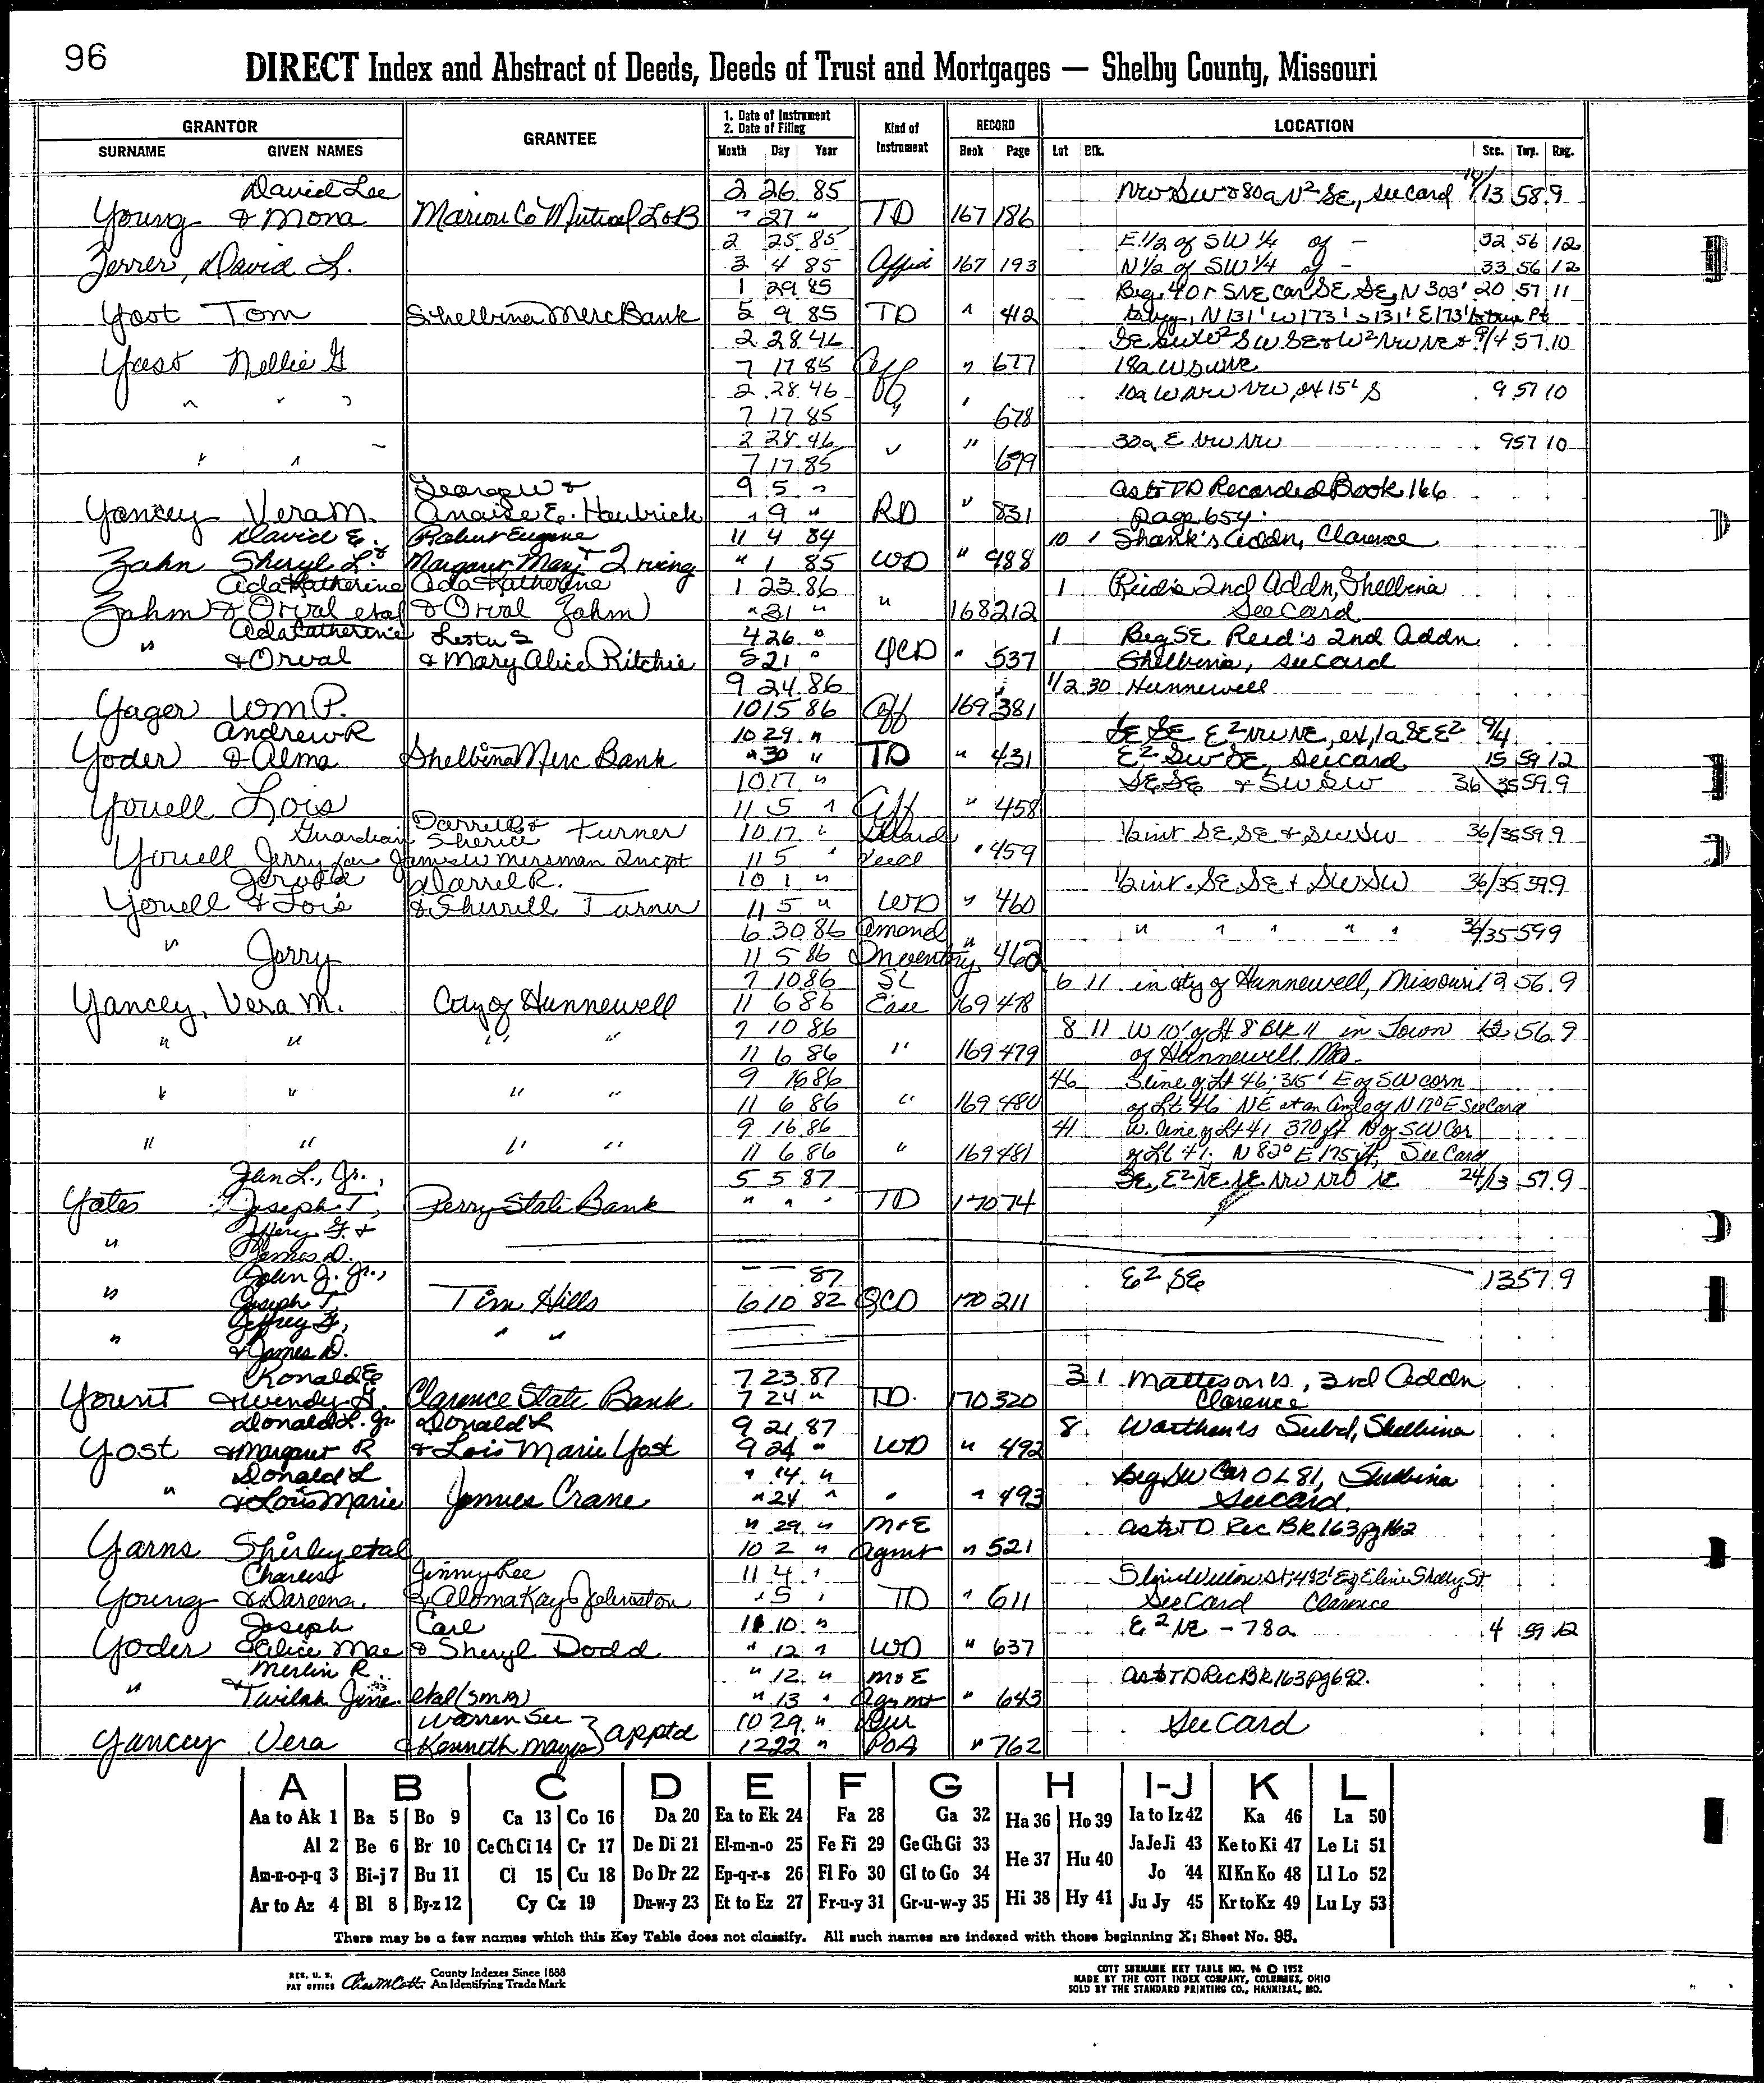 96
DIRECT Index and Abstract of Deeds, Deeds of Trust and Mortgages — Shelby County, Missouri
GRANTOR
SURNAME GIVEN NAMES
GRANTEE
1. Date of Instrument
2. Date of Filing
Month Day Year
Kind of Instrument
RECORD
Book Page
LOCATION
Lot Blk. Sec. Twp. Rng.
David Lee 2 26 85 NW SW & 80a N² SE, see card 13 58 9
Young & Mona Marion Co Mutual L&B " 27 " TD 167 186
2 25 85 E 1/2 of SW 1/4 of - 32 56 12
Zerrer, David L. 3 4 85 Affid 167 193 N 1/2 of SW 1/4 of - 33 56 12
1 29 85 Beg 40 r S NE Cor SE SE, N 303' 20 57 11
Yost Tom Shelbina Merc Bank 5 9 85 TD " 412 N 131' W 173' S 131' E 173' to true Pt
2 28 46 9/4 57 10
Yost Nellie G 7 17 85 Aff " 677 18a W SW NE
" " " 2 28 46 10a W NW NW, ex 15 L S 9 57 10
7 17 85 " " 678
2 28 46 30a E NW NW 9 57 10
" " 7 17 85 " " 679
George W & 9 5 " As to TD Recorded Book 166
Yancey Vera M. Anaise E. Houbrick " 9 " RD " 831 Page 654.
David E. Robert Eugene 11 4 84 10 1 Shank's Addn, Clarence
Zahn Sheryl L. & Margaret Mary Irving " 1 85 WD " 988
Ada Katherine Ada Katherine 1 23 86 1 Reid's 2nd Addn, Shelbina
Zahm & Orval etal & Orval Zahm " 31 " " 168 212 See Card
Ada Catherine Lester S 4 26 " 1 Beg SE Reid's 2nd Addn
" & Orval & Mary Alice Ritchie 5 21 " QCD " 537 Shelbina, see card
9 24 86 1/2 30 Hunnewell
Yager Wm P. 10 15 86 Aff 169 381
Andrew R 10 29 " SE SE E² NW NE, ex 1a SE E² 9/4
Yoder & Alma Shelbina Merc Bank " 30 " TD " 431 E² SW SE, see card 15 59 12
10 17 " SE SE & SW SW 36/35 59 9
Youell Lois 11 5 " Aff " 458
Guardian Darrell & Sherice Turner 10 17 " Guard 1/2 int SE SE & SW SW 36/35 59 9
Youell Jerry Lee James W Mersman Incpt 11 5 " Deed " 459
Jerold Darrel R. 10 1 " 1/2 int. SE SE & SW SW 36/35 59 9
Youell & Lois & Sherrill Turner 11 5 " WD " 460
6 30 86 Amend " " " " " 36/35 59 9
" Jerry 11 5 86 Inventory " 462
7 10 86 SL 6 11 in city of Hunnewell, Missouri 12 56 9
Yancey, Vera M. City of Hunnewell 11 6 86 Ease 169 478
7 10 86 8 11 W 10' of Lt 8 Blk 11 in Town 12 56 9
" " " " 11 6 86 " 169 479 of Hunnewell, Mo.
9 16 86 46 S line of Lt 46, 315' E of SW corn
" " " " 11 6 86 " 169 480 of Lt 46 NE at an Angle of N 12° E See Card
9 16 86 41 W. line of Lt 41 370 ft N of SW Cor
" " " " 11 6 86 " 169 481 of Lt 41. N 82° E 175 ft, See Card
L., Jr., 5 5 87 SE, E² NE, SE NW 24/13 57 9
Yates Joseph T, Perry State Bank " " " TD 170 74
Jeffery G. &
" James D.
John J. Jr., — — 87 E² SE 13 57 9
" Joseph T, Tim Hills 6 10 82 QCD 170 211
Jeffrey G, " "
" & James D.
Ronald E 7 23 87 3 1 Mattesons, 3rd Addn
Yount & Wendy G. Clarence State Bank 7 24 " TD. 170 320 Clarence
Donald L. Jr Donald L 9 21 87 8 Worthen's Subd, Shelbina
Yost & Margaret R & Lois Marie Yost 9 24 " WD " 492
Donald L " 14 " Beg SW Cor OL 81, Shelbina
" & Lois Marie James Crane " 24 " " " 493 See card.
" 29 " M&E as to TD Rec Bk 163 pg 162
Yarns Shirley etal 10 2 " Agmt " 521
Charles Jimmy Lee 11 4 " S line Willow St, 492' E of E line Shelby St
Young & Dareena. & Aloma Kay Johnston " 5 " TD " 611 See Card Clarence
Joseph Carl 11 10 " E² NE - 78a 4 59 12
Yoder & Alice Mae & Sheryl Dodd " 12 " WD " 637
Merlin R. " 12 " M&E as to TD Rec Bk 163 pg 692.
" & Twilah June etal (SMB) " 13 " Agmt " 643
Warren Lee 10 29 " Dur See Card
Yancey Vera & Kenneth Mayes } apptd 12 22 " POA " 762
A B C D E F G H I-J K L
Aa to Ak 1 Ba 5 Bo 9 Ca 13 Co 16 Da 20 Ea to Ek 24 Fa 28 Ga 32 Ha 36 Ho 39 Ia to Iz 42 Ka 46 La 50
Al 2 Be 6 Br 10 Ce Ch Ci 14 Cr 17 De Di 21 El-m-n-o 25 Fe Fi 29 Ge Gh Gi 33 He 37 Hu 40 Ja Je Ji 43 Ke to Ki 47 Le Li 51
Am-n-o-p-q 3 Bi-j 7 Bu 11 Cl 15 Cu 18 Do Dr 22 Ep-q-r-s 26 Fl Fo 30 Gl to Go 34 Jo 44 Kl Kn Ko 48 Ll Lo 52
Ar to Az 4 Bl 8 By-z 12 Cy Cz 19 Du-w-y 23 Et to Ez 27 Fr-u-y 31 Gr-u-w-y 35 Hi 38 Hy 41 Ju Jy 45 Kr to Kz 49 Lu Ly 53
There may be a few names which this Key Table does not classify. All such names are indexed with those beginning X; Sheet No. 95.
REG. U. S. PAT OFFICE County Indexes Since 1888 An Identifying Trade Mark
COTT SURNAME KEY TABLE NO. 96 © 1952
MADE BY THE COTT INDEX COMPANY, COLUMBUS, OHIO
SOLD BY THE STANDARD PRINTING CO., HANNIBAL, MO.